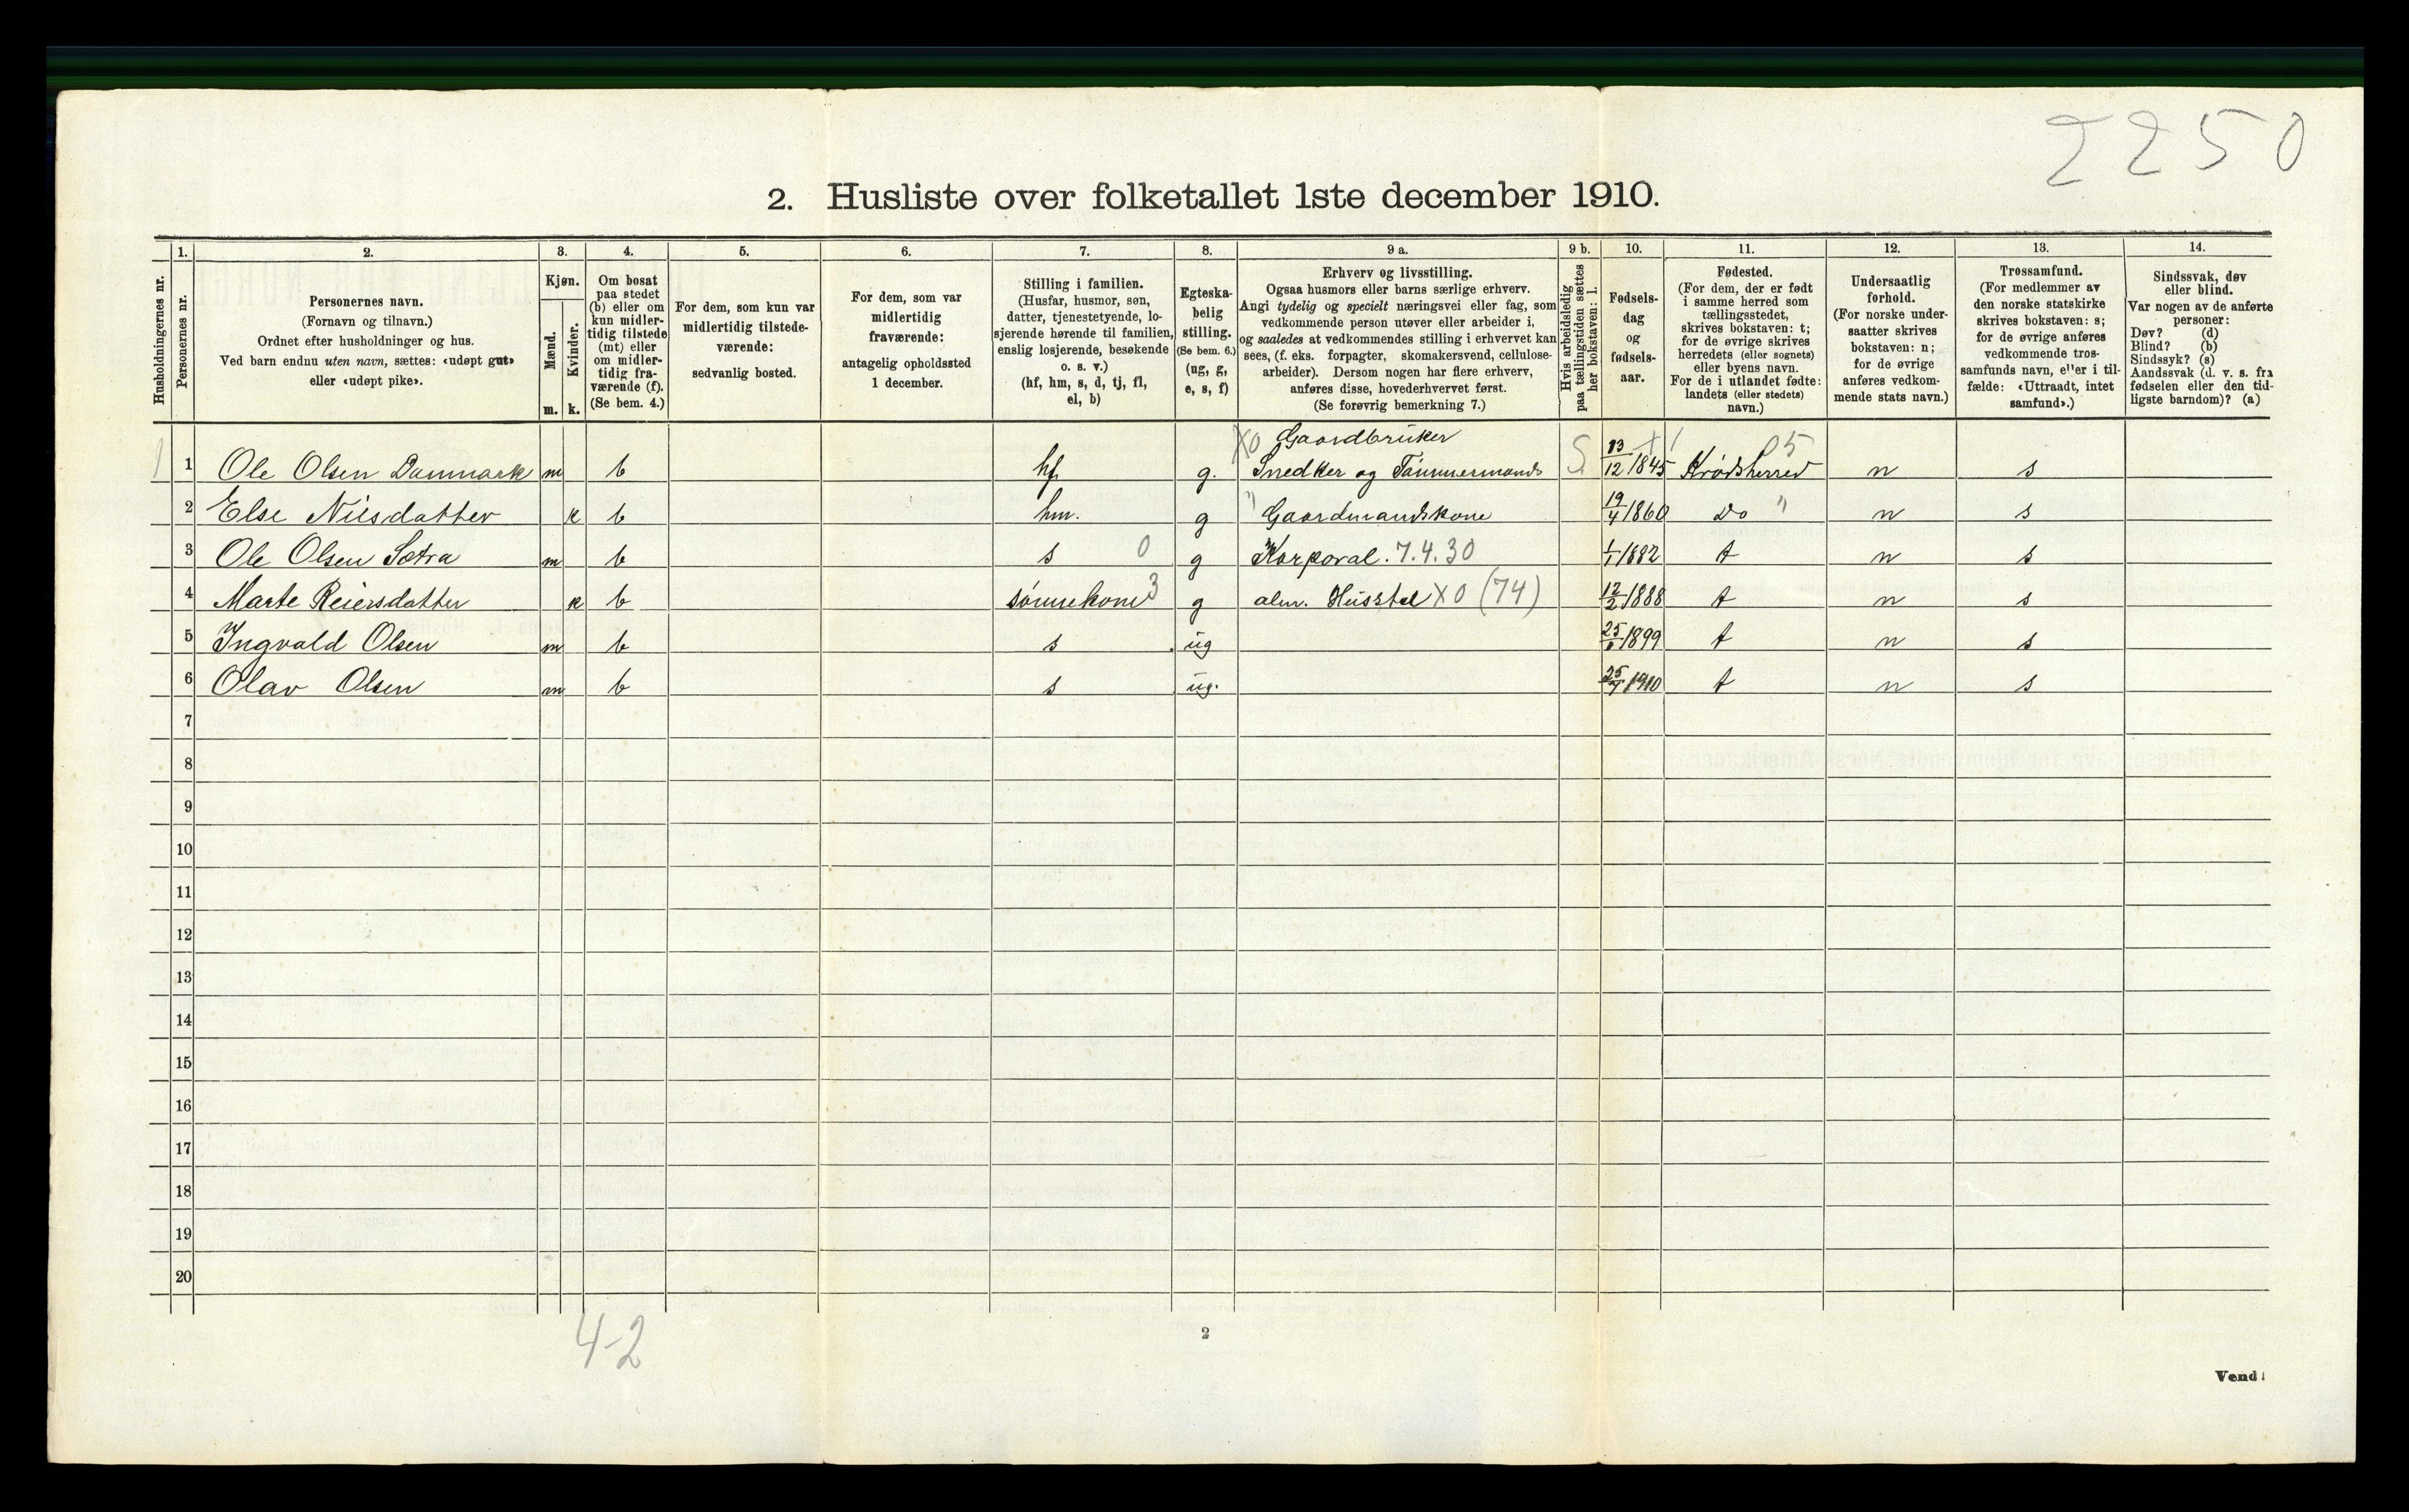 2250
2. Husliste over folketallet 1ste december 1910.
Husholdningernes nr.
1. Personernes nr.
2. Personernes navn.
(Fornavn og tilnavn.)
Ordnet efter husholdninger og hus.
Ved barn endnu uten navn, sættes: «udøpt gut»
eller «udøpt pike».
3. Kjøn.
Mænd. m.
Kvinder. k.
4. Om bosat
paa stedet
(b) eller om
kun midler-
tidig tilstede
(mt) eller
om midler-
tidig fra-
værende (f).
(Se bem. 4.)
5. For dem, som kun var
midlertidig tilstede-
værende:
sedvanlig bosted.
6. For dem, som var
midlertidig
fraværende:
antagelig opholdssted
1 december.
7. Stilling i familien.
(Husfar, husmor, søn,
datter, tjenestetyende, lo-
sjerende hørende til familien,
enslig losjerende, besøkende
o. s. v.)
(hf, hm, s, d, tj, fl,
el, b)
8. Egteska-
belig
stilling.
(Se bem. 6.)
(ug, g,
e, s, f)
9 a. Erhverv og livsstilling.
Ogsaa husmors eller barns særlige erhverv.
Angi tydelig og specielt næringsvei eller fag, som
vedkommende person utøver eller arbeider i,
og saaledes at vedkommendes stilling i erhvervet kan
sees, (f. eks. forpagter, skomakersvend, cellulose-
arbeider). Dersom nogen har flere erhverv,
anføres disse, hovederhvervet først.
(Se forøvrig bemerkning 7.)
9 b. Hvis arbeidsledig
paa tællingstiden sættes
her bokstaven: l.
10. Fødsels-
dag
og
fødsels-
aar.
11. Fødested.
(For dem, der er født
i samme herred som
tællingsstedet,
skrives bokstaven: t;
for de øvrige skrives
herredets (eller sognets)
eller byens navn.
For de i utlandet fødte:
landets (eller stedets)
navn.)
12. Undersaatlig
forhold.
(For norske under-
saatter skrives
bokstaven: n;
for de øvrige
anføres vedkom-
mende stats navn.)
13. Trossamfund.
(For medlemmer av
den norske statskirke
skrives bokstaven: s;
for de øvrige anføres
vedkommende tros-
samfunds navn, eller i til-
fælde: «Uttraadt, intet
samfund».)
14. Sindssvak, døv
eller blind.
Var nogen av de anførte
personer:
Døv? (d)
Blind? (b)
Sindssyk? (s)
Aandssvak (d. v. s. fra
fødselen eller den tid-
ligste barndom)? (a)
X0 Gaardbruker
1 1 Ole Olsen Dammark m b hf g. Snedker og Tømmermands S 13/12 1845 Krødsherred 05 n s
2 Else Nilsdatter k b hm. g " Gaardmandskone 19/4 1860 Do " n s
3 Ole Olsen Sætra m b s 0 g Korporal. 7.4.30 1/1 1882 t n s
4 Marte Reiersdatter k b sønnekone 3 g alm. Husstel X0 (74) 12/2 1888 t n s
5 Ingvald Olsen m b s ug 1899 t n s
6 Olav Olsen m b s ug. 1910 t n s
7
8
9
10
11
12
13
14
15
16
17
18
19
20
4-2
2
Vend!